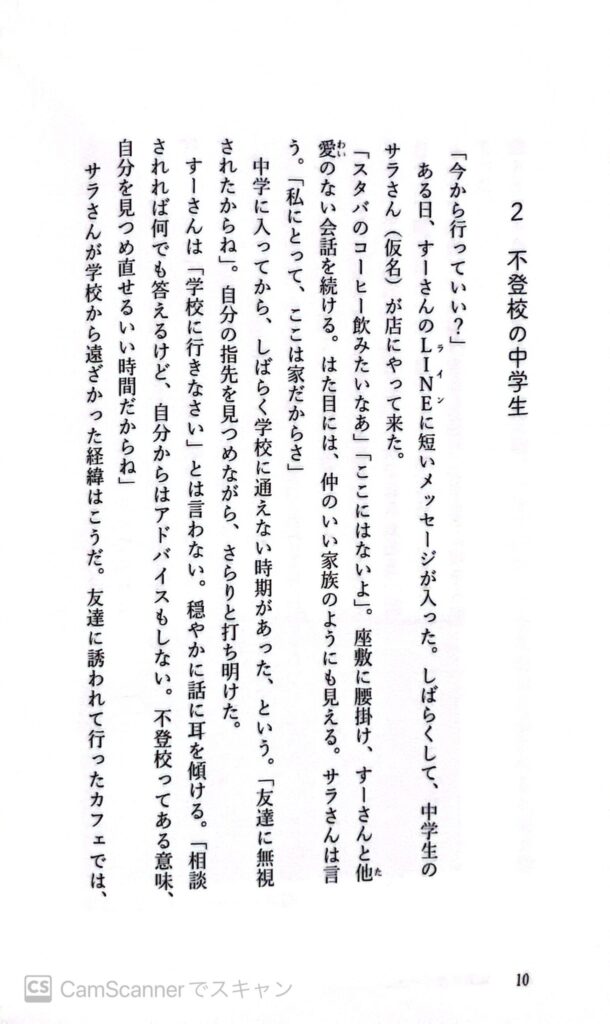 2 不登校の中学生
「今から行っていい?」
ある日、すーさんのLINEに短いメッセージが入った。しばらくして、中学生の
ライン
サラさん（仮名）が店にやって来た。
「スタバのコーヒー飲みたいなあ」「ここにはないよ」。座敷に腰掛け、すーさんと他
た
愛のない会話を続ける。はた目には、仲のいい家族のようにも見える。サラさんは言
わい
う。「私にとって、ここは家だからさ」
中学に入ってから、しばらく学校に通えない時期があった、という。「友達に無視
されたからね」。自分の指先を見つめながら、さらりと打ち明けた。
すーさんは「学校に行きなさい」とは言わない。穏やかに話に耳を傾ける。「相談
されれば何でも答えるけど、自分からはアドバイスもしない。不登校ってある意味、
自分を見つめ直せるいい時間だからね」
サラさんが学校から遠ざかった経緯はこうだ。友達に誘われて行ったカフェでは、
10
CS CamScannerでスキャン